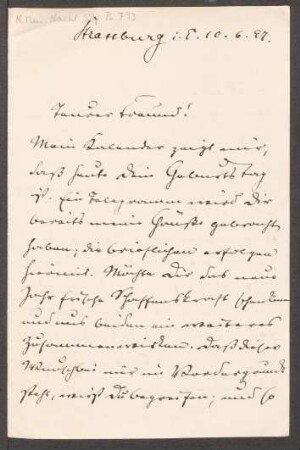 Strassburg i. E. 10. 6. 97.
Teurer Freund!
Mein Kalender zeigt mir,
daß heute Dein Geburtstag
ist. Ein Telegramm wird Dir
bereits meine Grüße gebracht
haben; die brieflichen erfolgen
hiermit. Möchte Dir das neue
Jahr frische Schaffenskraft schenken
und uns beiden ein weiteres
Zusammenwirken. Daß dieser
Wunsch bei mir im Vordergrunde
steht, wirst Du begreifen; und so